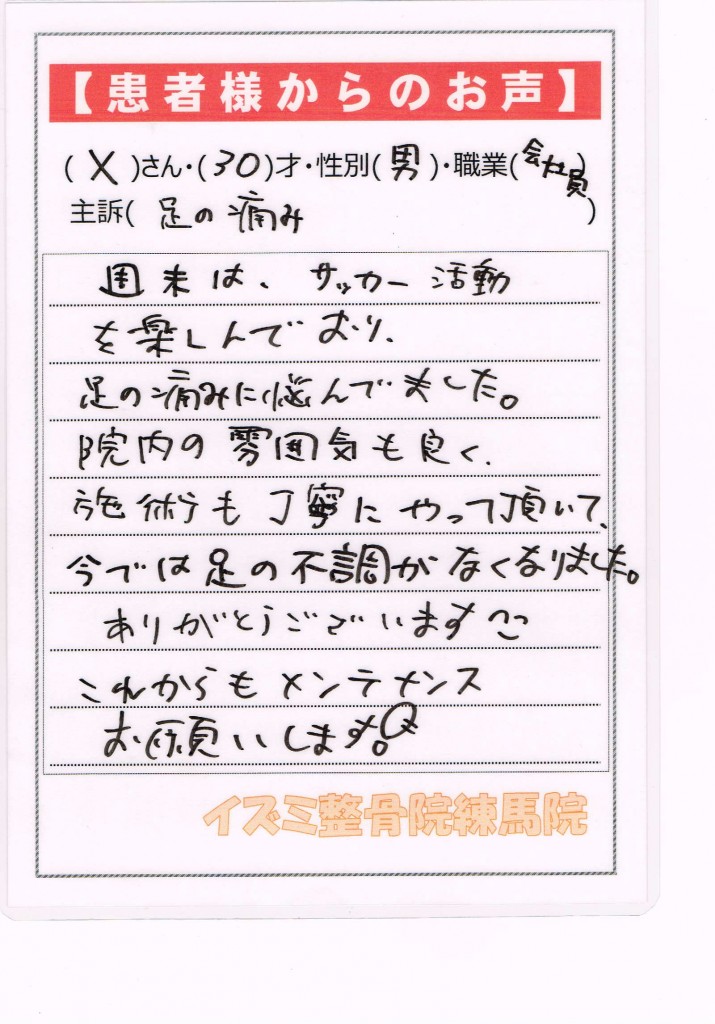 【患者様からのお声】
(X)さん・(30)才・性別(男)・職業(会社員)
主訴(足の痛み)
週末は、サッカー活動
を楽しんでおり、
足の痛みに悩んでました。
院内の雰囲気も良く、
施術も丁寧にやって頂いて、
今では足の不調がなくなりました。
ありがとうございます
これからもメンテナンス
お願いします。
イズミ整骨院練馬院